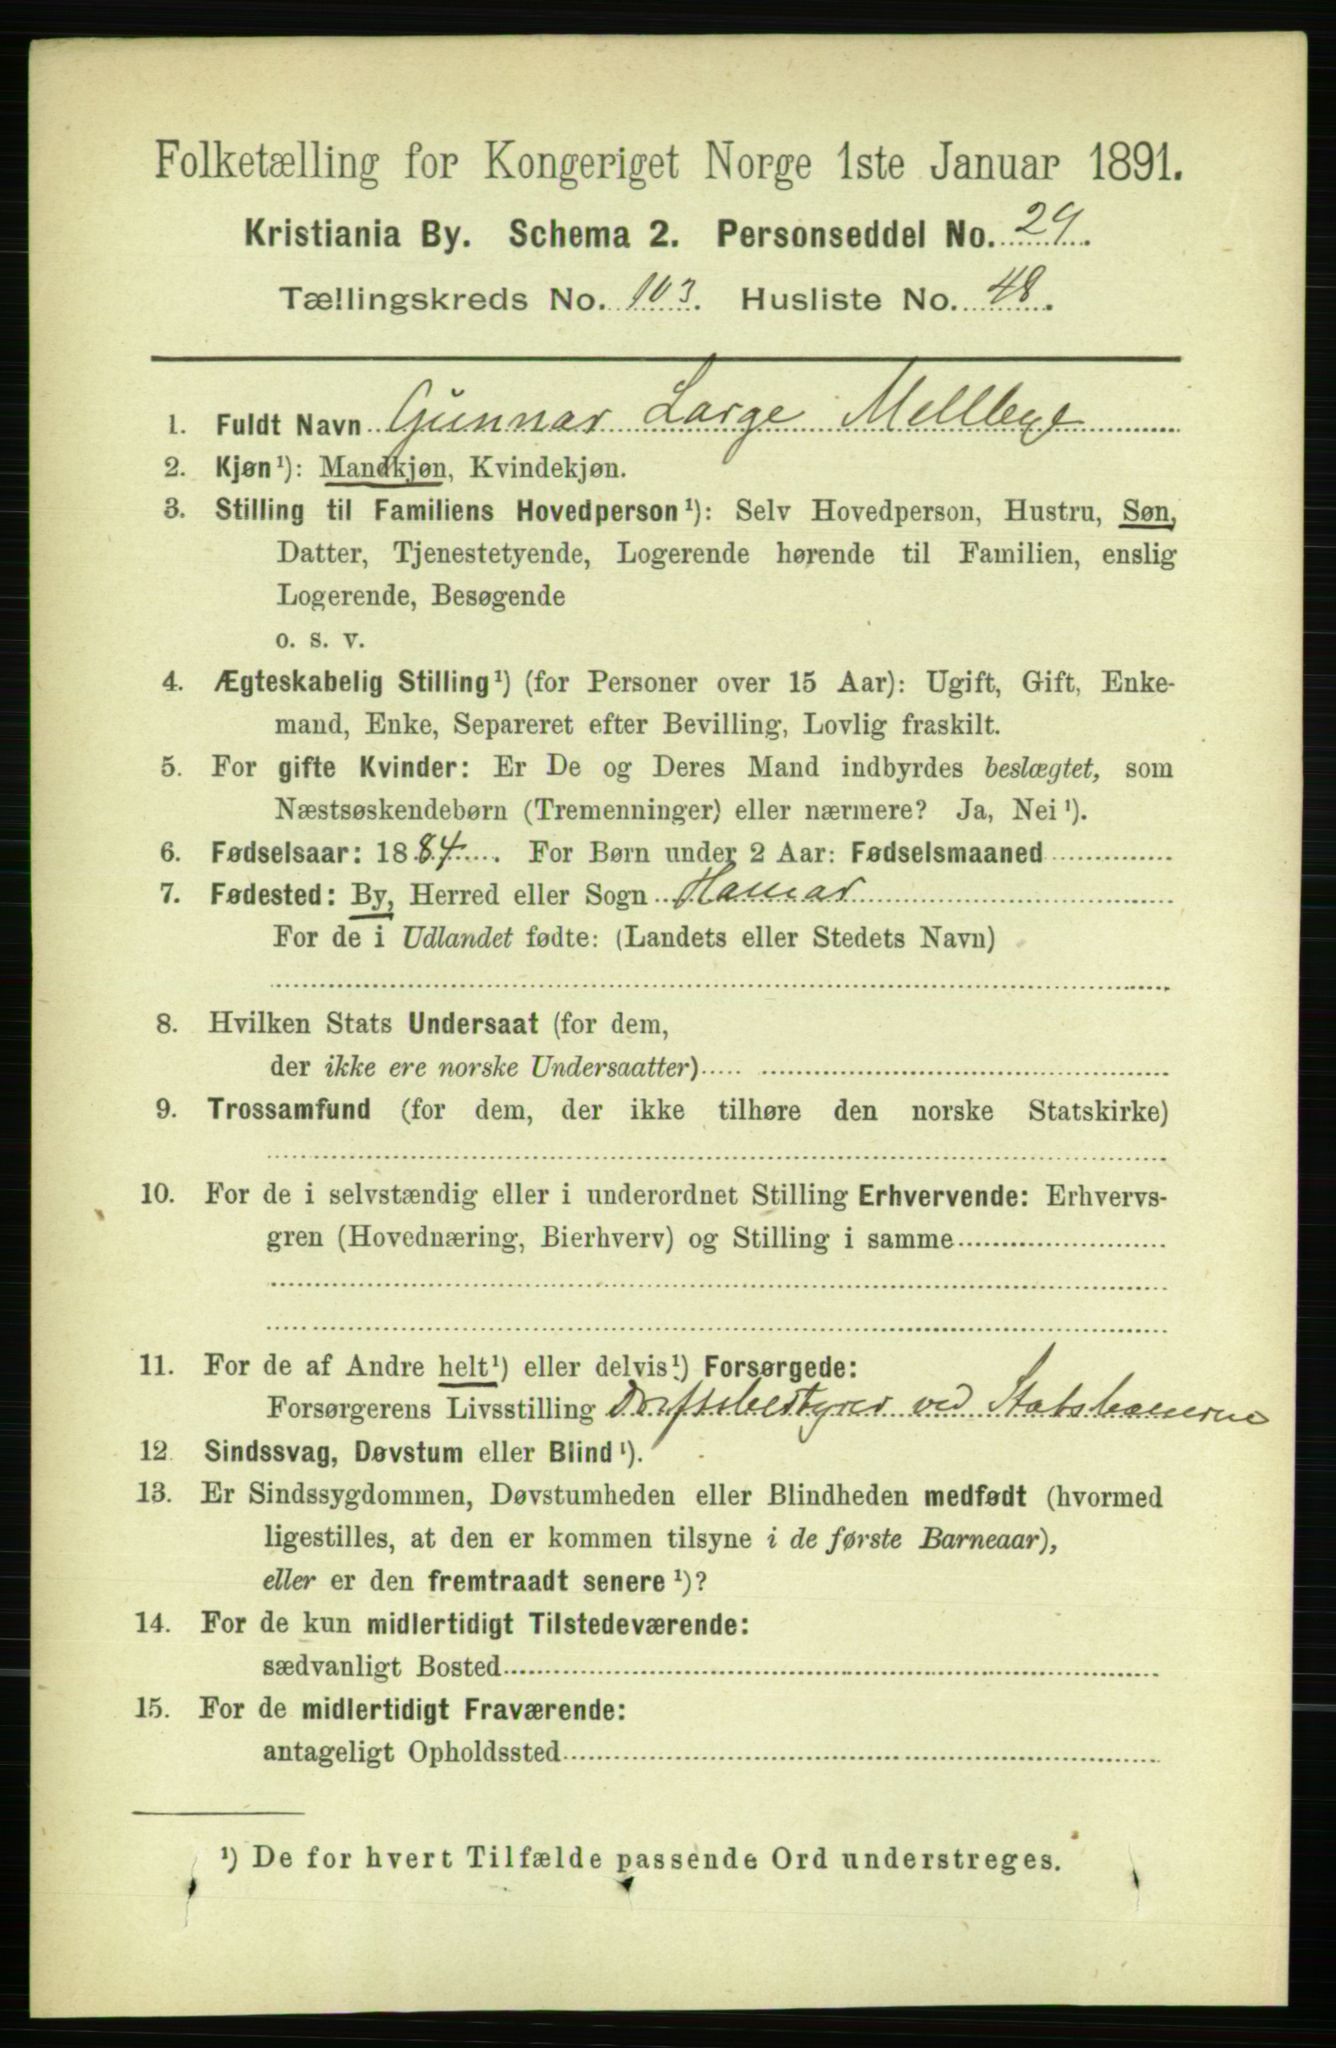 Folketælling for Kongeriget Norge 1ste Januar 1891.
Kristiania By. Schema 2. Personseddel No. 29.
Tællingskreds No. 103. Husliste No. 48.
1. Fuldt Navn Gunnar Large Mellbye
2. Kjøn¹): Mandkjøn, Kvindekjøn.
3. Stilling til Familiens Hovedperson¹): Selv Hovedperson, Hustru, Søn,
Datter, Tjenestetyende, Logerende hørende til Familien, enslig
Logerende, Besøgende
o. s. v.
4. Ægteskabelig Stilling¹) (for Personer over 15 Aar): Ugift, Gift, Enke-
mand, Enke, Separeret efter Bevilling, Lovlig fraskilt.
5. For gifte Kvinder: Er De og Deres Mand indbyrdes beslægtet, som
Næstsøskendebørn (Tremenninger) eller nærmere? Ja, Nei¹).
6. Fødselsaar: 1884. For Børn under 2 Aar: Fødselsmaaned
7. Fødested: By, Herred eller Sogn Hamar
For de i Udlandet fødte: (Landets eller Stedets Navn)
8. Hvilken Stats Undersaat (for dem,
der ikke ere norske Undersaatter)
9. Trossamfund (for dem, der ikke tilhøre den norske Statskirke)
10. For de i selvstændig eller i underordnet Stilling Erhvervende: Erhvervs-
gren (Hovednæring, Bierhverv) og Stilling i samme
11. For de af Andre helt¹) eller delvis¹) Forsørgede:
Forsørgerens Livsstilling Driftsbestyrer ved Statsbanerne
12. Sindssvag, Døvstum eller Blind¹).
13. Er Sindssygdommen, Døvstumheden eller Blindheden medfødt (hvormed
ligestilles, at den er kommen tilsyne i de første Barneaar),
eller er den fremtraadt senere¹)?
14. For de kun midlertidigt Tilstedeværende:
sædvanligt Bosted
15. For de midlertidigt Fraværende:
antageligt Opholdssted
¹) De for hvert Tilfælde passende Ord understreges.